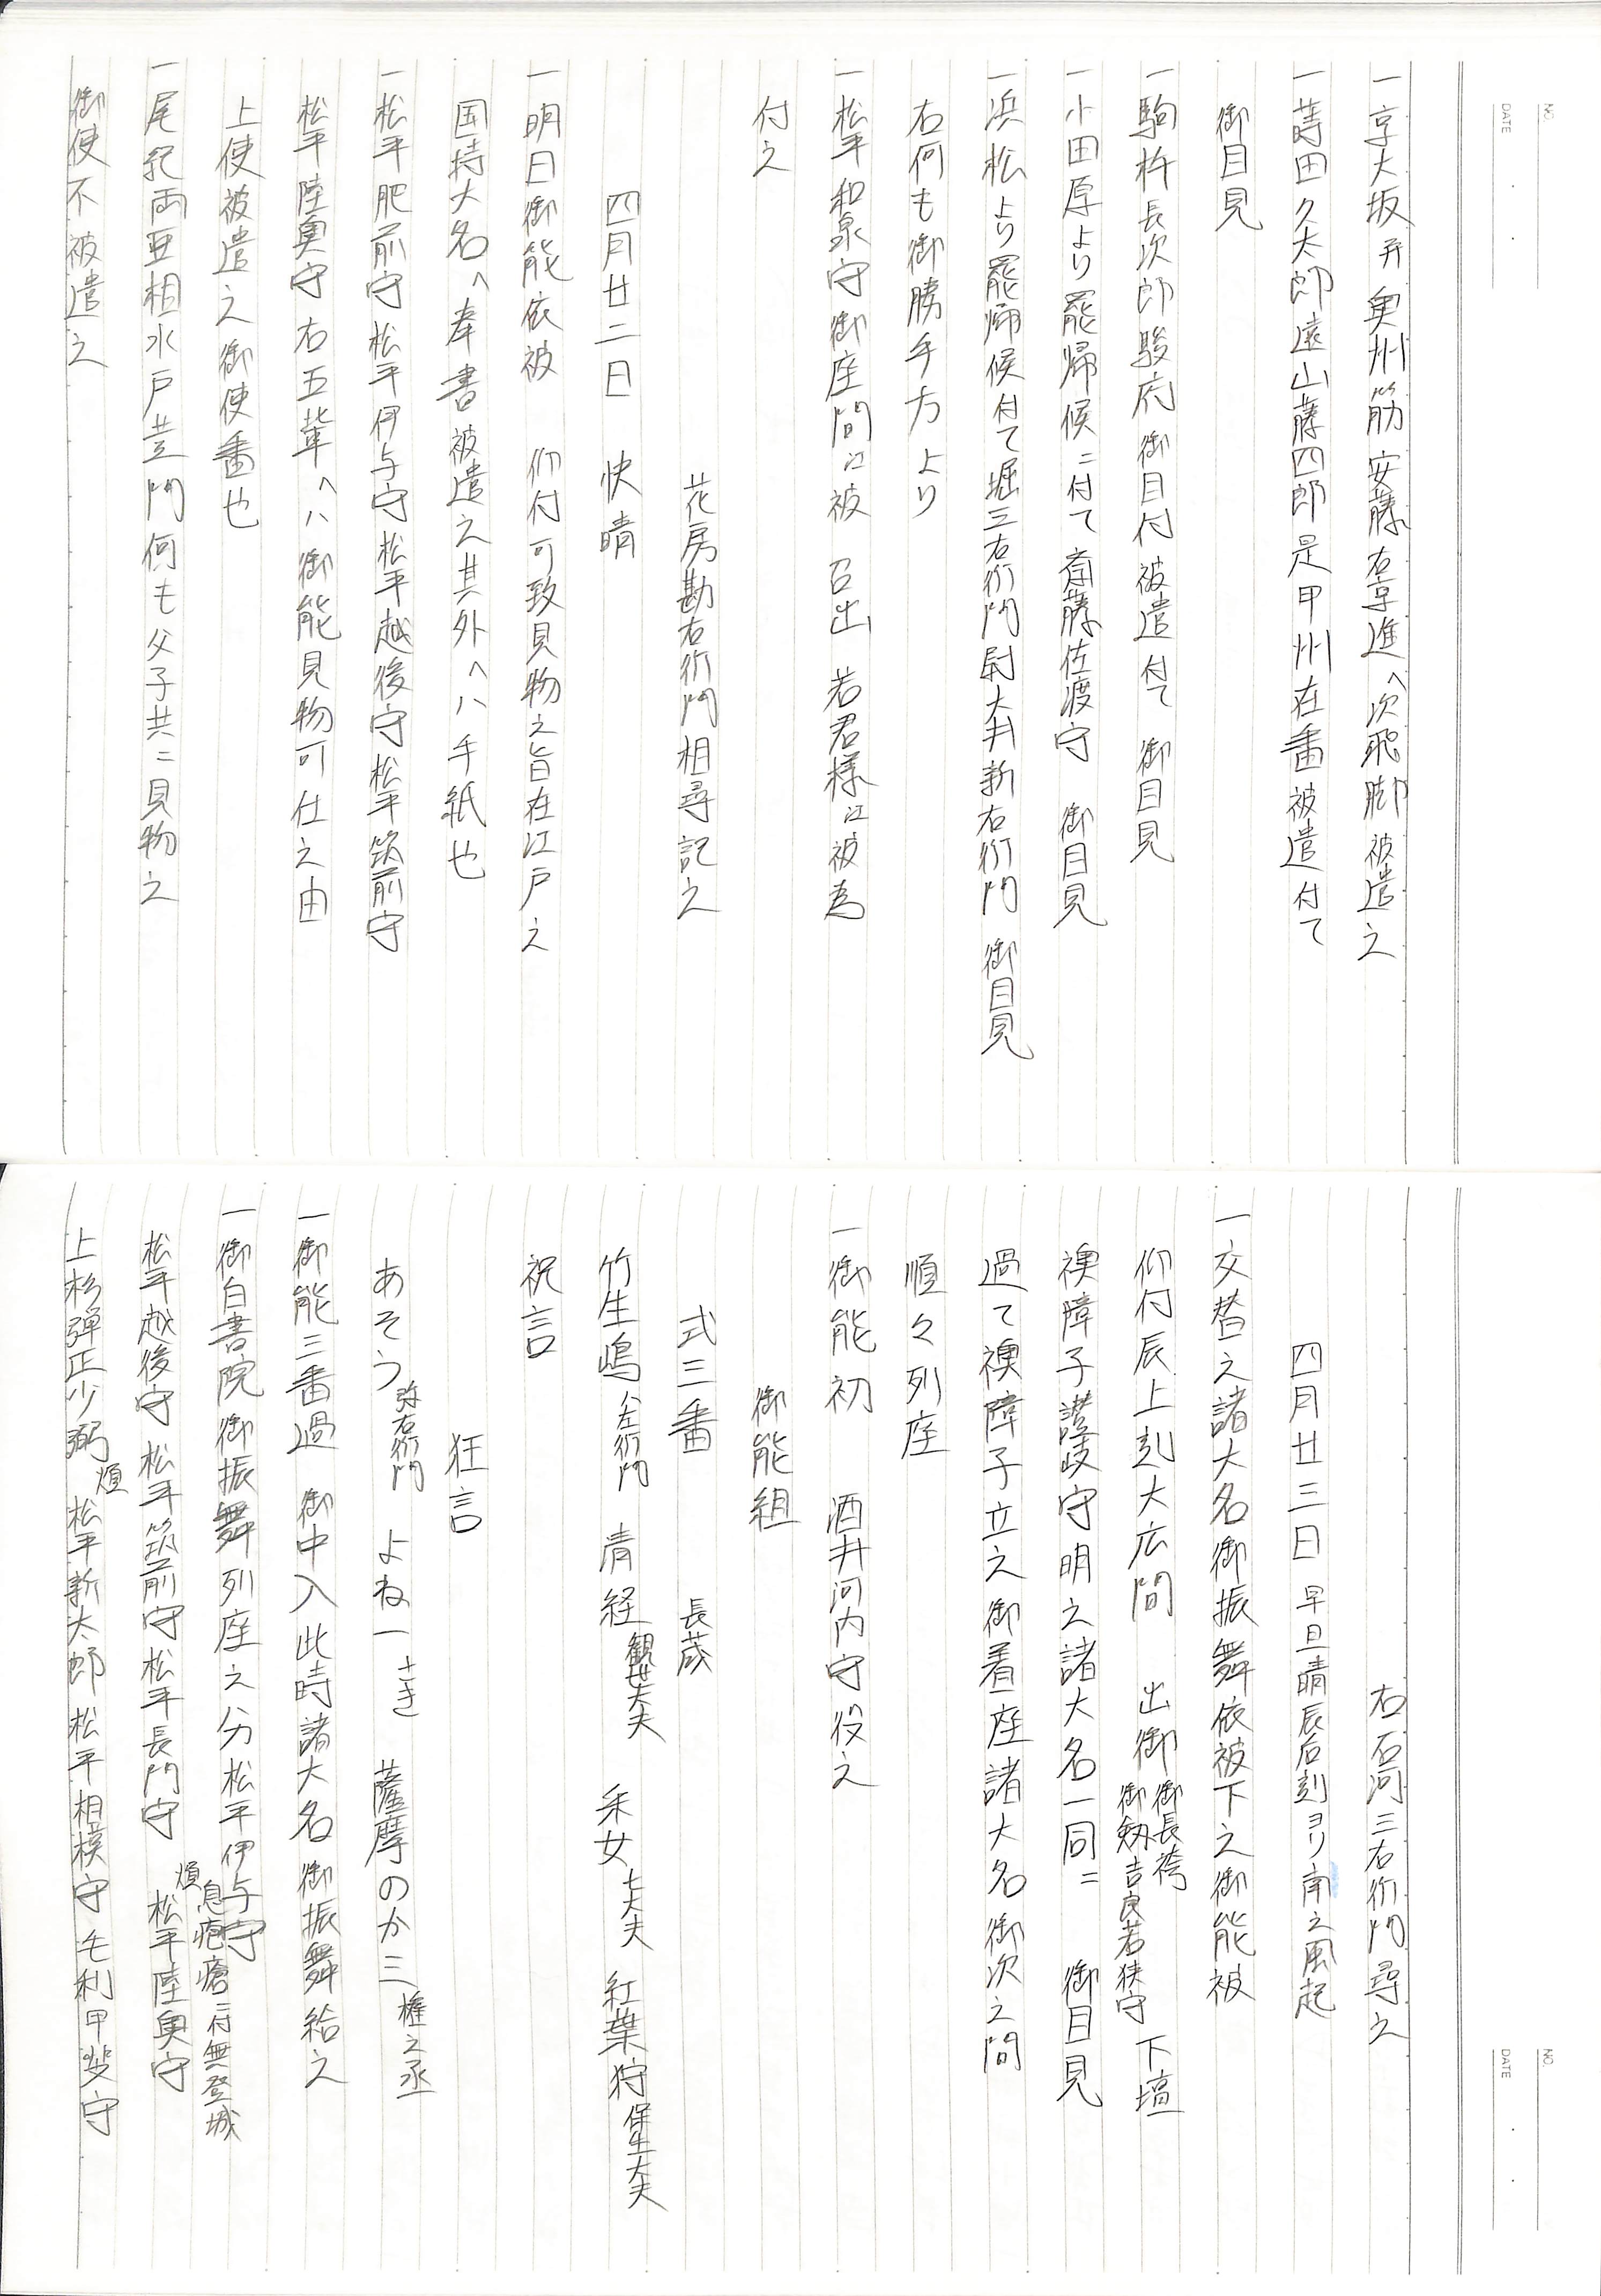 一京大坂并奥州筋安藤右京進へ次飛脚被遣之
一蒔田久太郎遠山藤四郎是甲州在番被遣付て
御目見
一駒杵長次郎駿府御目付被遣付て 御目見
一小田原より罷帰候ニ付て斎藤佐渡守 御目見
一浜松より罷帰候付て堀三右衛門尉大井新右衛門 御目見
右何も御勝手方より
一松平和泉守御座間江被 召出 若君様江被為
付之
花房勘右衛門相尋記之
四月廿二日 快晴
一明日御能依被 仰付可致見物之旨在江戸之
国持大名へ奉書被遣之其外へハ手紙也
一松平肥前守松平伊与守松平越後守松平筑前守
松平陸奥守右五輩へハ御能見物可仕之由
上使被遣之御使番也
一尾紀両亜相水戸黄門何も父子共ニ見物之
御使不被遣之
右石河三右衛門尋之
四月廿三日 早旦晴辰后刻ヨリ南之風起
一交替之諸大名御振舞依被下之御能被
仰付辰上刻大広間 出御 御長袴 御剱吉良若狭守 下壇
襖障子讃岐守明之諸大名一同ニ 御目見
過て襖障子立之御着座諸大名御次之間
順々列座
一御能初 酒井河内守役之
御能組
式三番 長蔵
竹生嶋 八左衛門 清経 観世大夫 采女 七大夫 紅葉狩 保生大夫
祝言
狂言
あそう 弥右衛門 よね一 さき 薩摩のか三 権之丞
一御能三番過 御中入此時諸大名御振舞給之
一御白書院御振舞列座之分松平伊与守
松平越後守 松平筑前守松平長門守 煩 息疱瘡ニ付無登城 松平陸奥守
上杉弾正少弼 煩 松平新太郎 松平相模守 毛利甲斐守